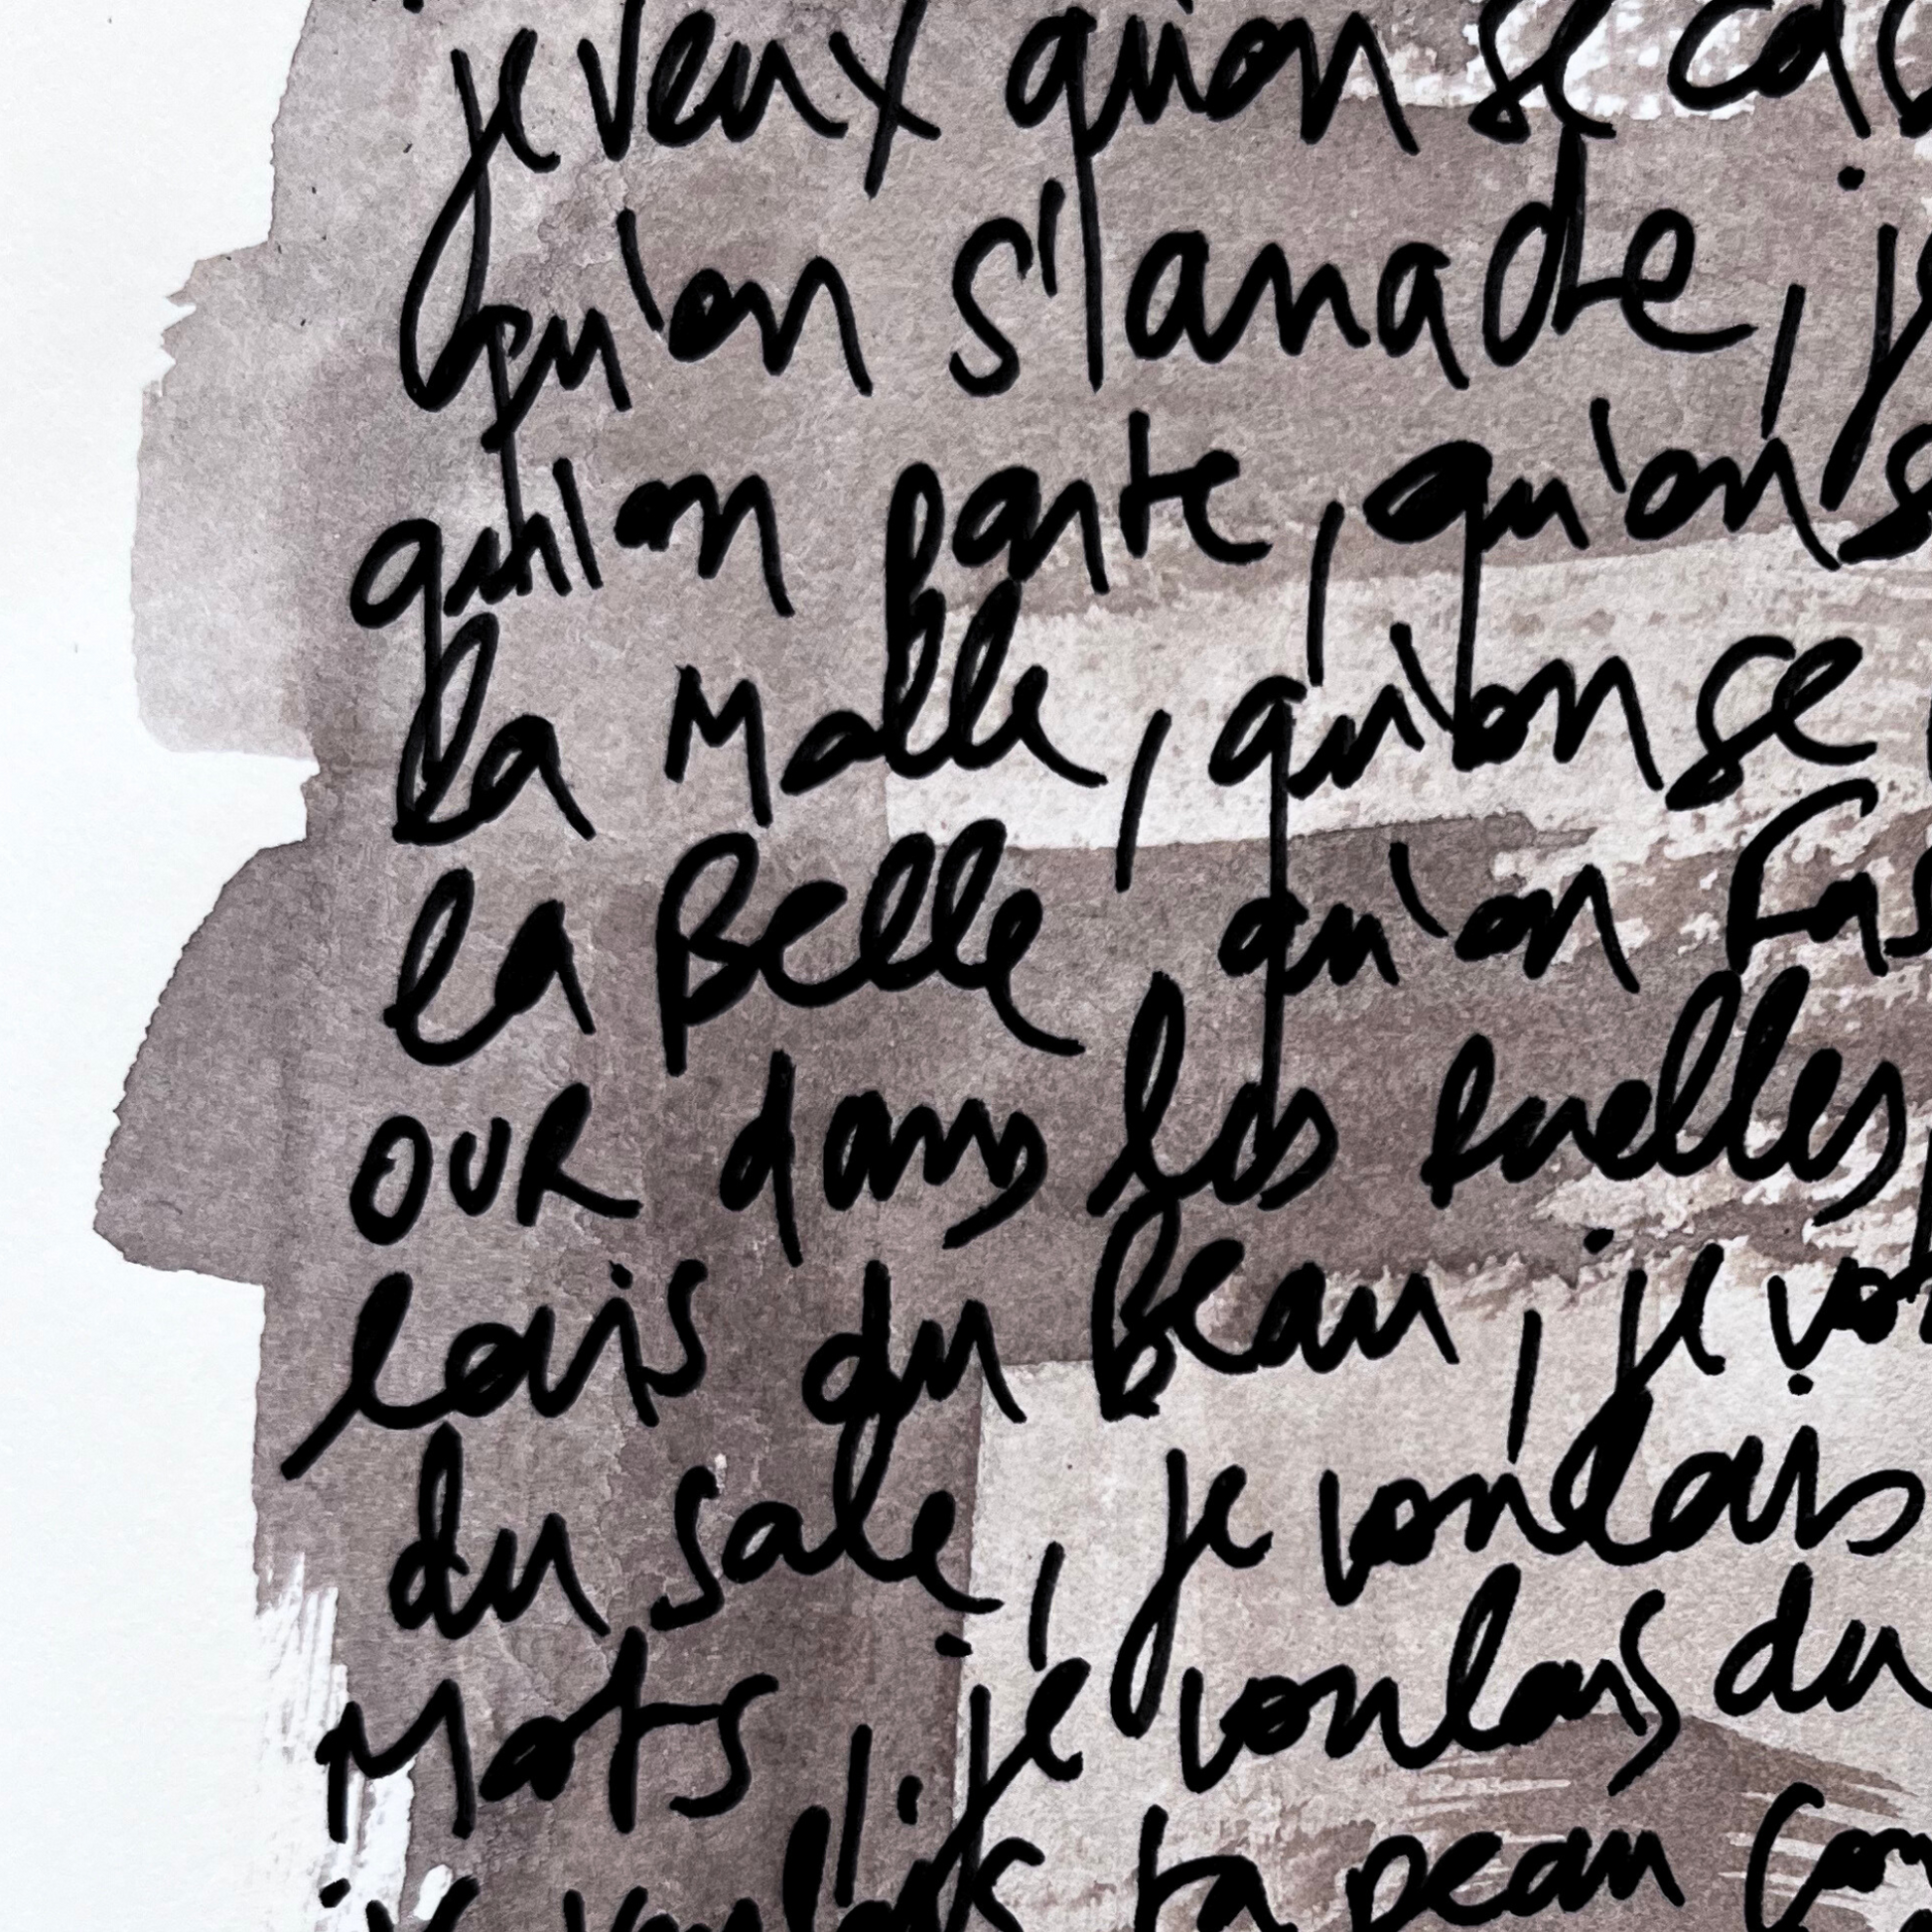 je veux qu'on se cas
qu'on s'arrache, j
qu'on parte, qu'on s
la Malle, qu'on se
la Belle, qu'on fas
OUR dans les ruelles
lais du beau, je vou
du sale, je voulais
Mots, je voulais du
je voulais ta peau con